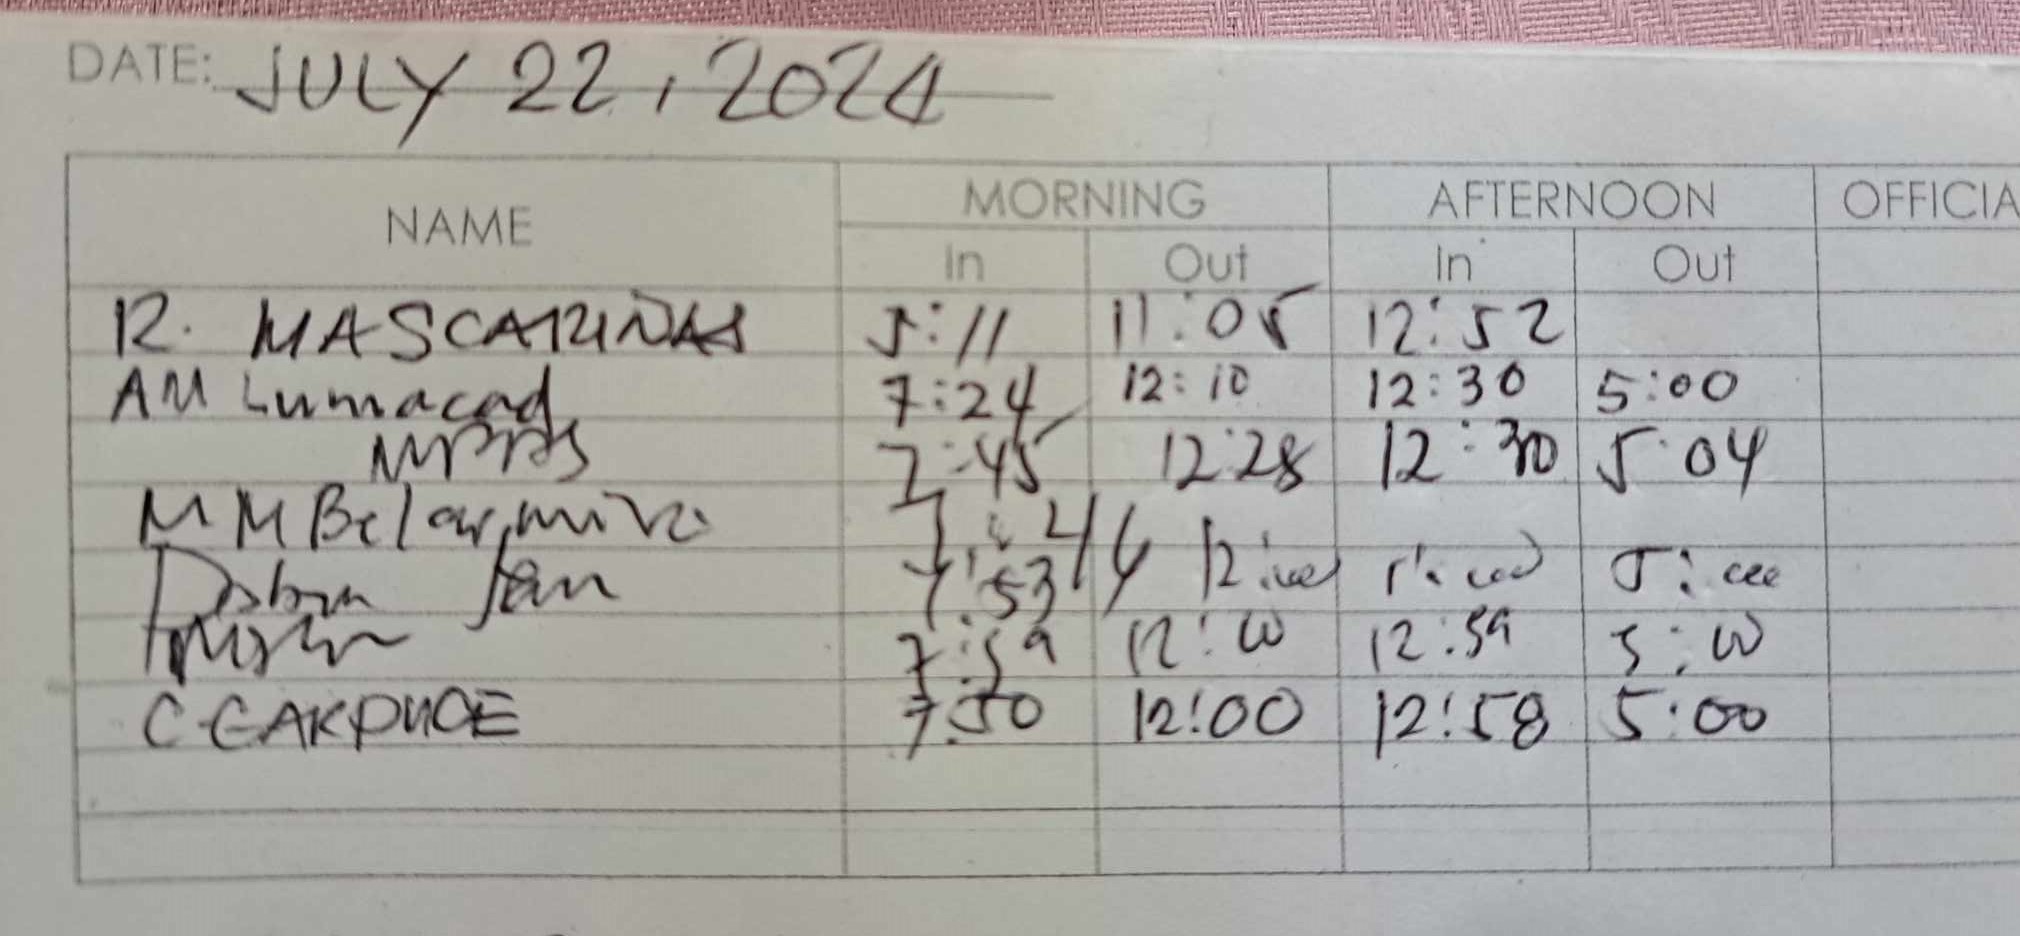 DATE: JULY 22, 2024
NAME MORNING AFTERNOON OFFICIA
In Out In Out
R. MASCARIÑAS 5:11 11:05 12:52
AM Lumacad 7:24 12:10 12:30 5:00
7:45 12:28 12:30 5:04
MM Belarmino 7:44 12:00 1:00 5:00
7:53
7:59 12:00 12:59 5:00
7:50 12:00 12:58 5:00